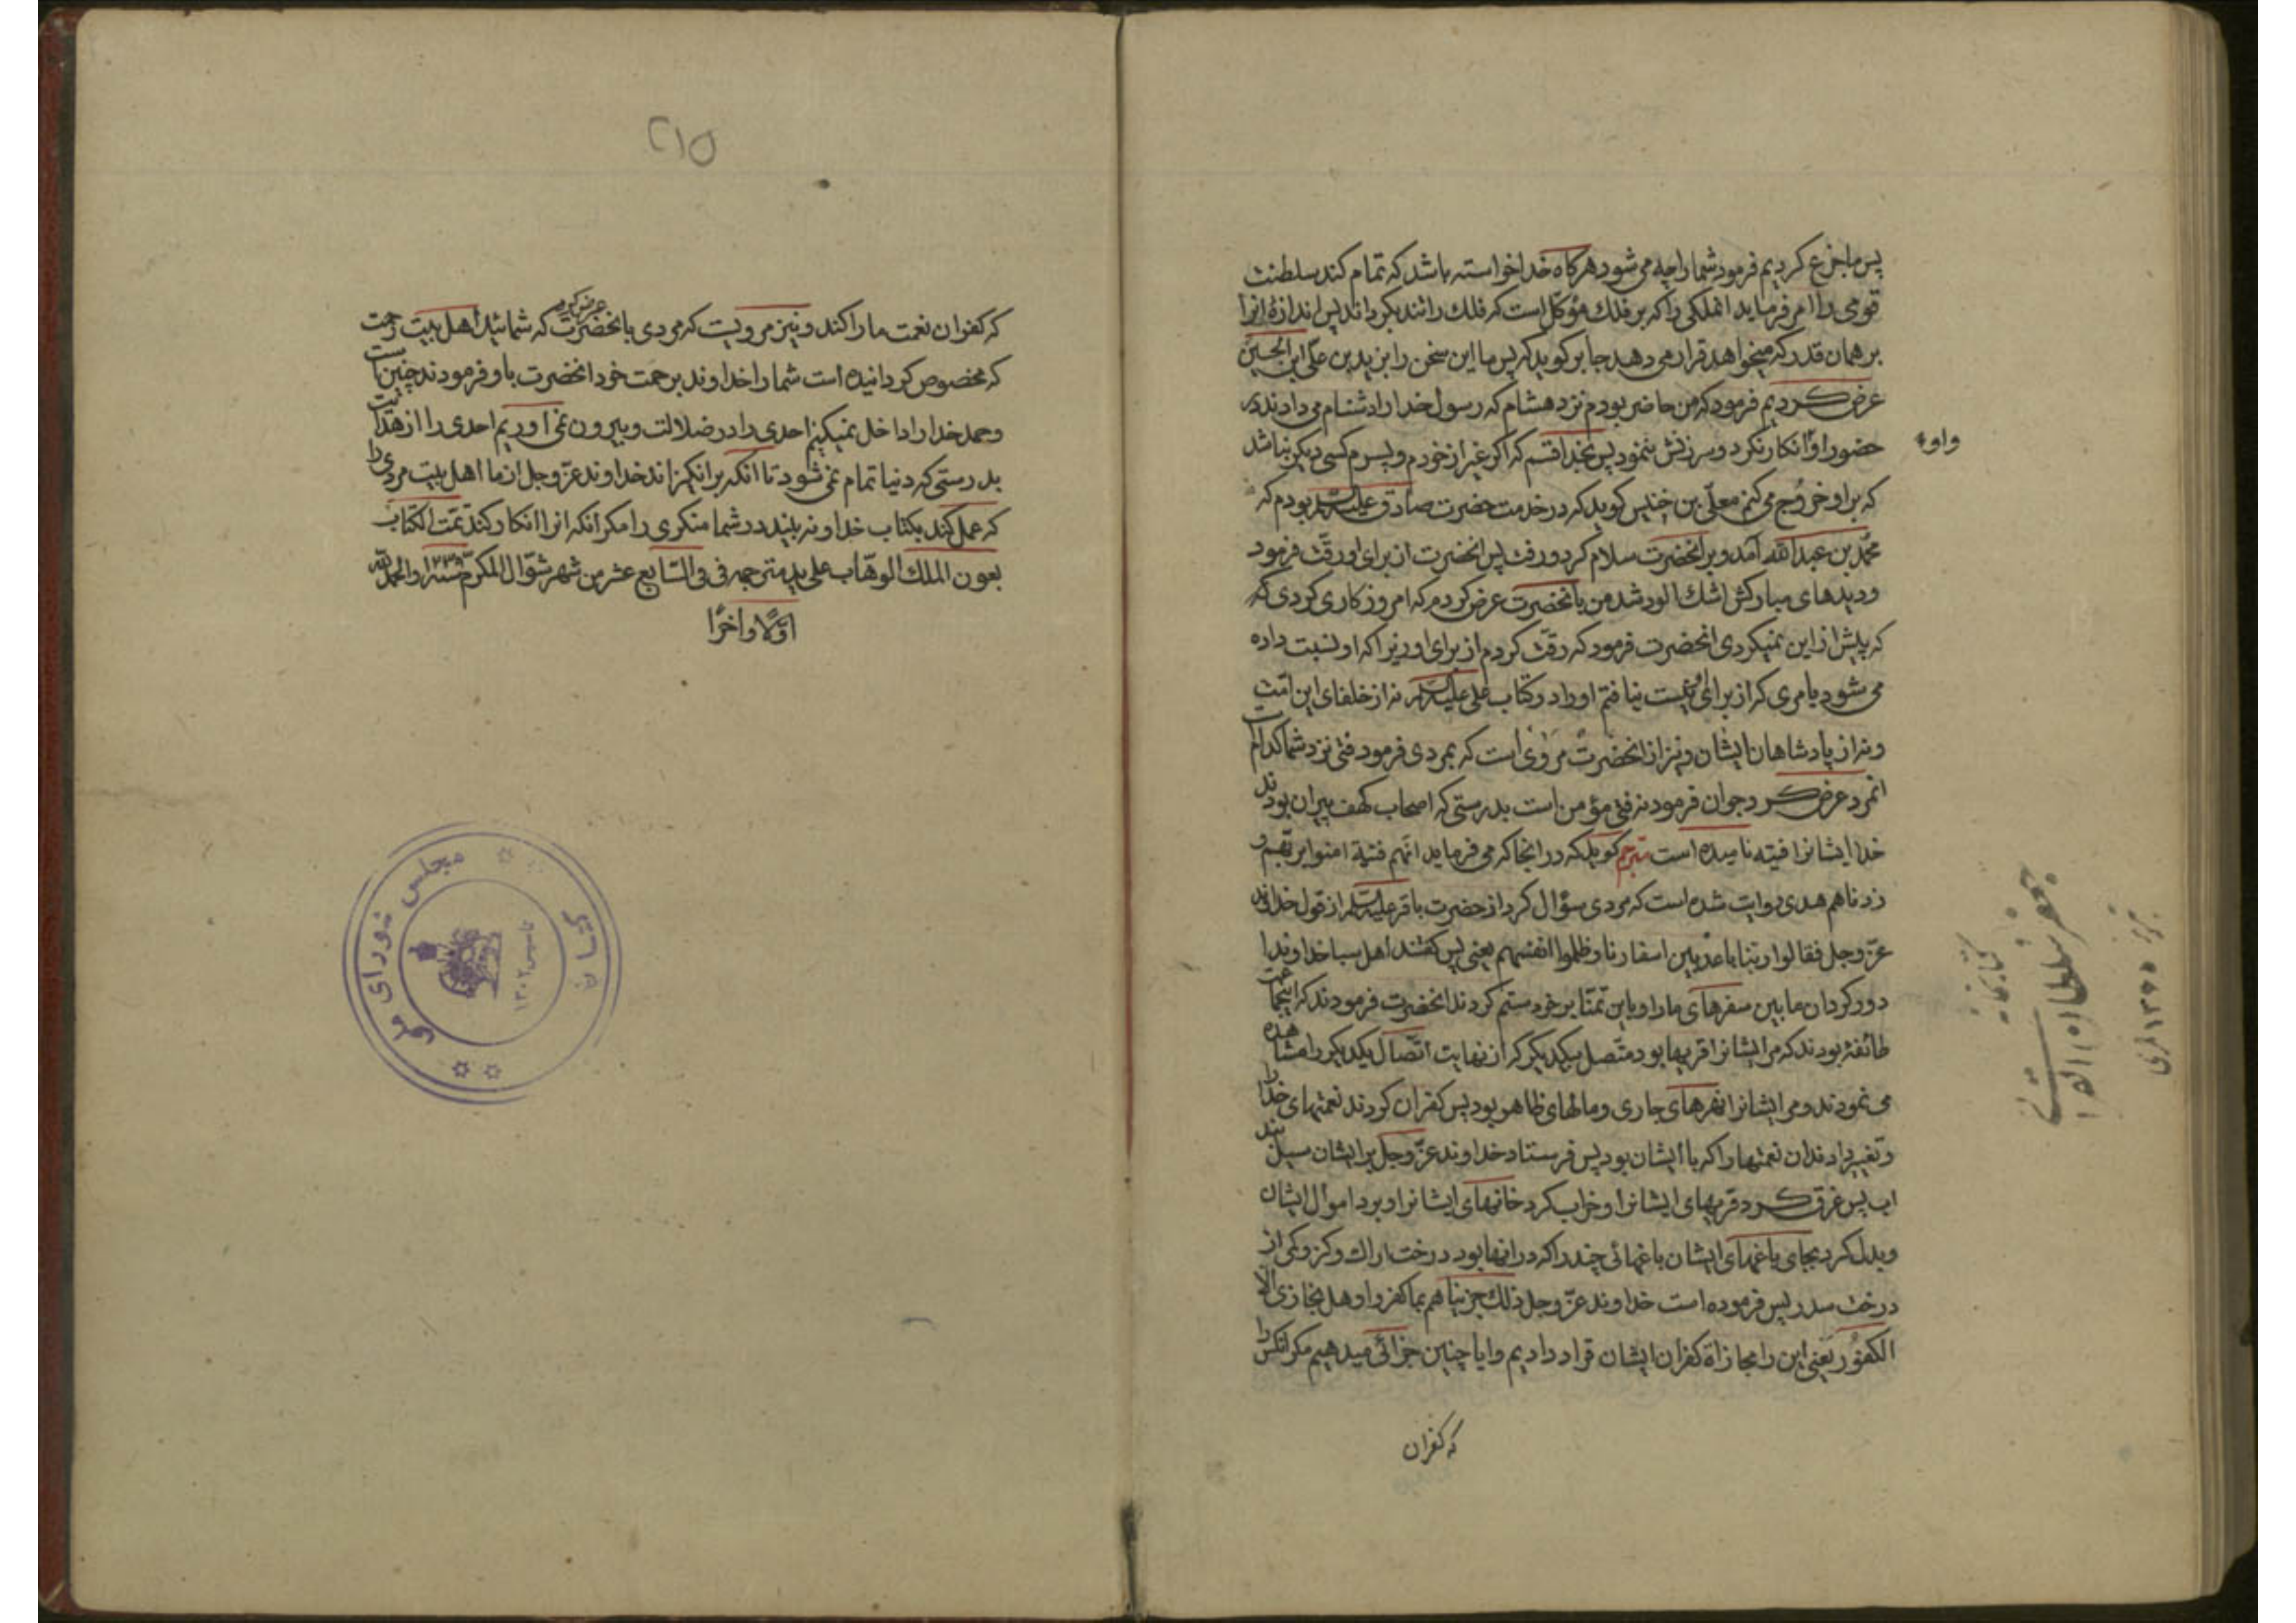 پس ما جزع کردیم فرمود شما را چه می شود هرکاه خدا خواسته باشد که تمام کند سلطنت
قومی را امر فرماید انملکی را که بر فلك مؤکل است که فلك را تند بکرداند پس اندازۀ انرا
بر همان قدر که میخواهد قرار می دهد جابر کوید که پس ما این سخن را بزید بن علی ابن الحسین
عرض کردیم فرمود که من حاضر بودم نزد هشام که رسول خدا را دشنام می دادند در
حضور او و انکار نکرد و سرزنش ننمود پس بخدا قسم که اکر غیر از خودم و پسرم کسی دیکر نباشد
واو
که بر او خروج می کنم معلّی بن خنیس کوید که در خدمت حضرت صادق علیه السلام بودم که
محمّد بن عبدالله آمد و بر انحضرت سلام کرد و رفت پس انحضرت از برای او رقّت فرمود
و دیدهای مبارکش اشك الود شد من بانحضرت عرض کردم که امروز کاری کردی که
که پیش از این نمیکردی انحضرت فرمود که رقّت کردم از برای او زیرا که او نسبت داده
می شود بامری که از برای او نیست نیافتم او را در کتاب علی علیه السلام نه از خلفای این امّت
و نه از پادشاهان ایشان و نیز از انحضرت مروی است که بمردی فرمود فتی نزد شما کدام است
انمرد عرض کرد جوان فرمود نه فتی مؤمن است بدرستی که اصحاب کهف پیران بودند
خدا ایشانرا فتیه نامیده است مترجم کوید که در انجا که می فرماید انّهم فتیة امنوا بربّهم و
زدناهم هدی روایت شده است که مردی سؤال کرد از حضرت باقر علیه السلام از قول خداوند
عزّ و جل فقالوا ربّنا باعد بین اسفارنا و ظلموا انفسهم یعنی پس کفتند اهل سبا خداوندا
دور کردان ما بین سفرهای ما را و باین تمنّا بر خود ستم کردند انحضرت فرمودند که اینجماعت
طائفۀ بودند که مر ایشانرا قریها بود متّصل بیکدیکر که از نهایت اتّصال یکدیکر را مشاهده
می نمودند و مر ایشانرا نهرهای جاری و مالهای ظاهر بود پس کفران کردند نعمتهای خدا را
و تغییر دادند ان نعمتها را که با ایشان بود پس فرستاد خداوند عزّ و جل بر ایشان سیل
اب پس غرق کرد قریهای ایشانرا و خراب کرد خانهای ایشانرا و برد اموال ایشان
و بدل کرد بجای باغهای ایشان باغهائی چند را که در انها بود درخت اراك و کز و کمی از
درخت سدر پس فرموده است خداوند عزّ و جل ذلك جزیناهم بما کفروا و هل نجازی الّا
الکفور یعنی این را مجازاة کفران ایشان قرار دادیم و ایا چنین جزائی میدهیم مکر انکس را
که کفران
کتابخانه
جعفر سلطان القرائی
تبریز
۲۱۵
که کفران نعمت ما را کند و نیز مرویست که مردی بانحضرت عرض کرد که شمائید اهل بیت رحمت
که مخصوص کردانیده است شما را خداوند برحمت خود انحضرت باو فرمودند چنین است
و حمد خدا را داخل نمیکنیم احدی را در ضلالت و بیرون نمی اوریم احدی را از هدایت
بدرستی که دنیا تمام نمی شود تا انکه برانکیزاند خداوند عزّ و جل از ما اهل بیت مردی را
که عمل کند بکتاب خدا و نه بیند در شما منکری را مکر انکه انرا انکار کند تمّت الکتاب
بعون الملك الوهّاب علی ید مترجمه فی السّابع عشر من شهر شوّال المکرّم والحمد لله
اوّلا و اخرا
کتابخانه
مجلس شورای ملی
تاسیس ۱۳۰۲